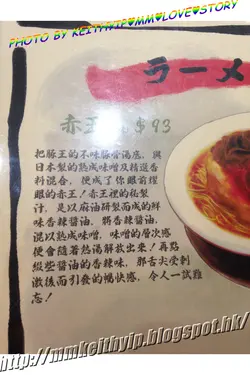 PHOTO BY KEITHYIP♥MM♥LOVE♥STORY
ラーメ
赤王 $93
把豚王的不味豚骨湯底，與
日本製的熟成味噌及精選香
料混合，便成了你眼前燦
眼的赤王！赤王裡的秘製
汁，是以麻油研製而成的鮮
味香辣醬油。將香辣醬油，
混以熟成味噌，味噌的層次感
便會隨著熱湯解放出來！再點
綴些醬油的香辣味，那舌尖受刺
激後而引發的暢快感，令人一試難
忘！
http://mmkeithyip.blogspot.hk/